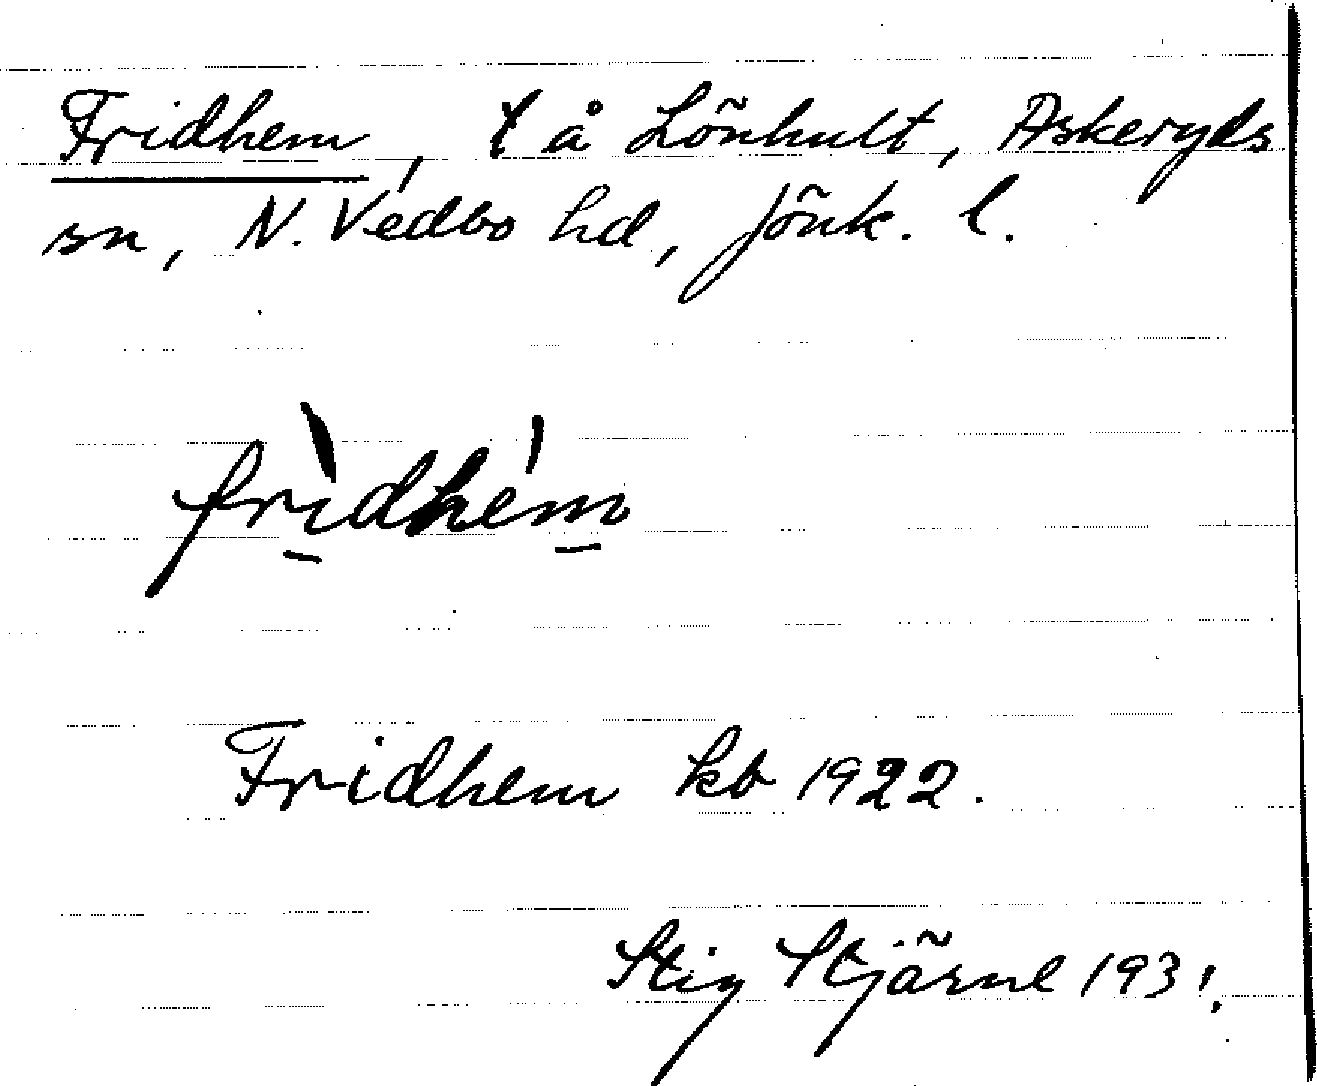 Fridhem, t å Lönhult, Askeryds
sn, N. Vedbo hd, Jönk. l.
fri̠dhem̠
Fridhem kb 1922.
Stig Stjärne 1931.